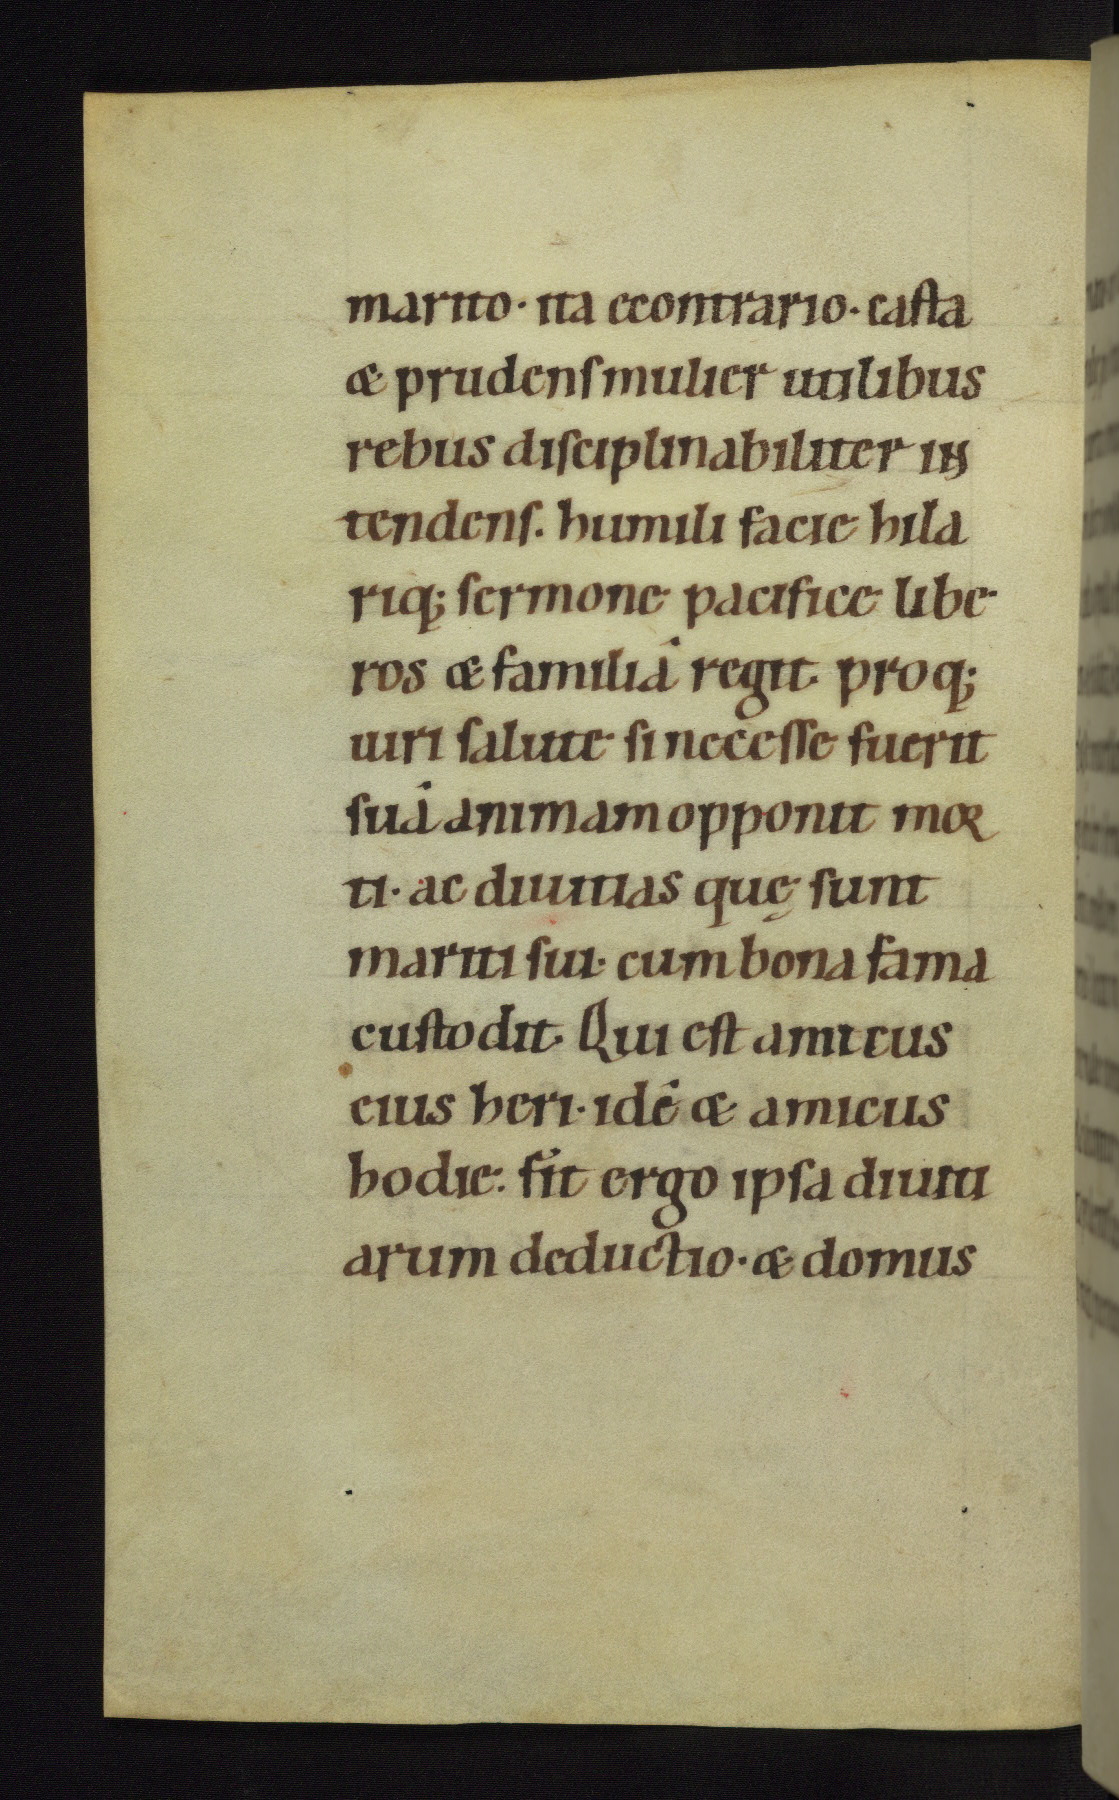 marito· ita econtrario· caſta
& prudenſ mulier utilibus
rebus diſciplinabiliter in
tendenſ. humili facie hila
riq; ſermone pacifice libe
ros & familiā regit· proq;
uiri ſalute ſi neceſſe fuerit
ſuā animam opponit mor
ti· ac diuitias quę ſunt
mariti ſui· cum bona fama
cuſtodit· Qui eſt amicus
eius heri· idē & amicus
hodie· fit ergo ipſa diuiti
arum deductio· & domus